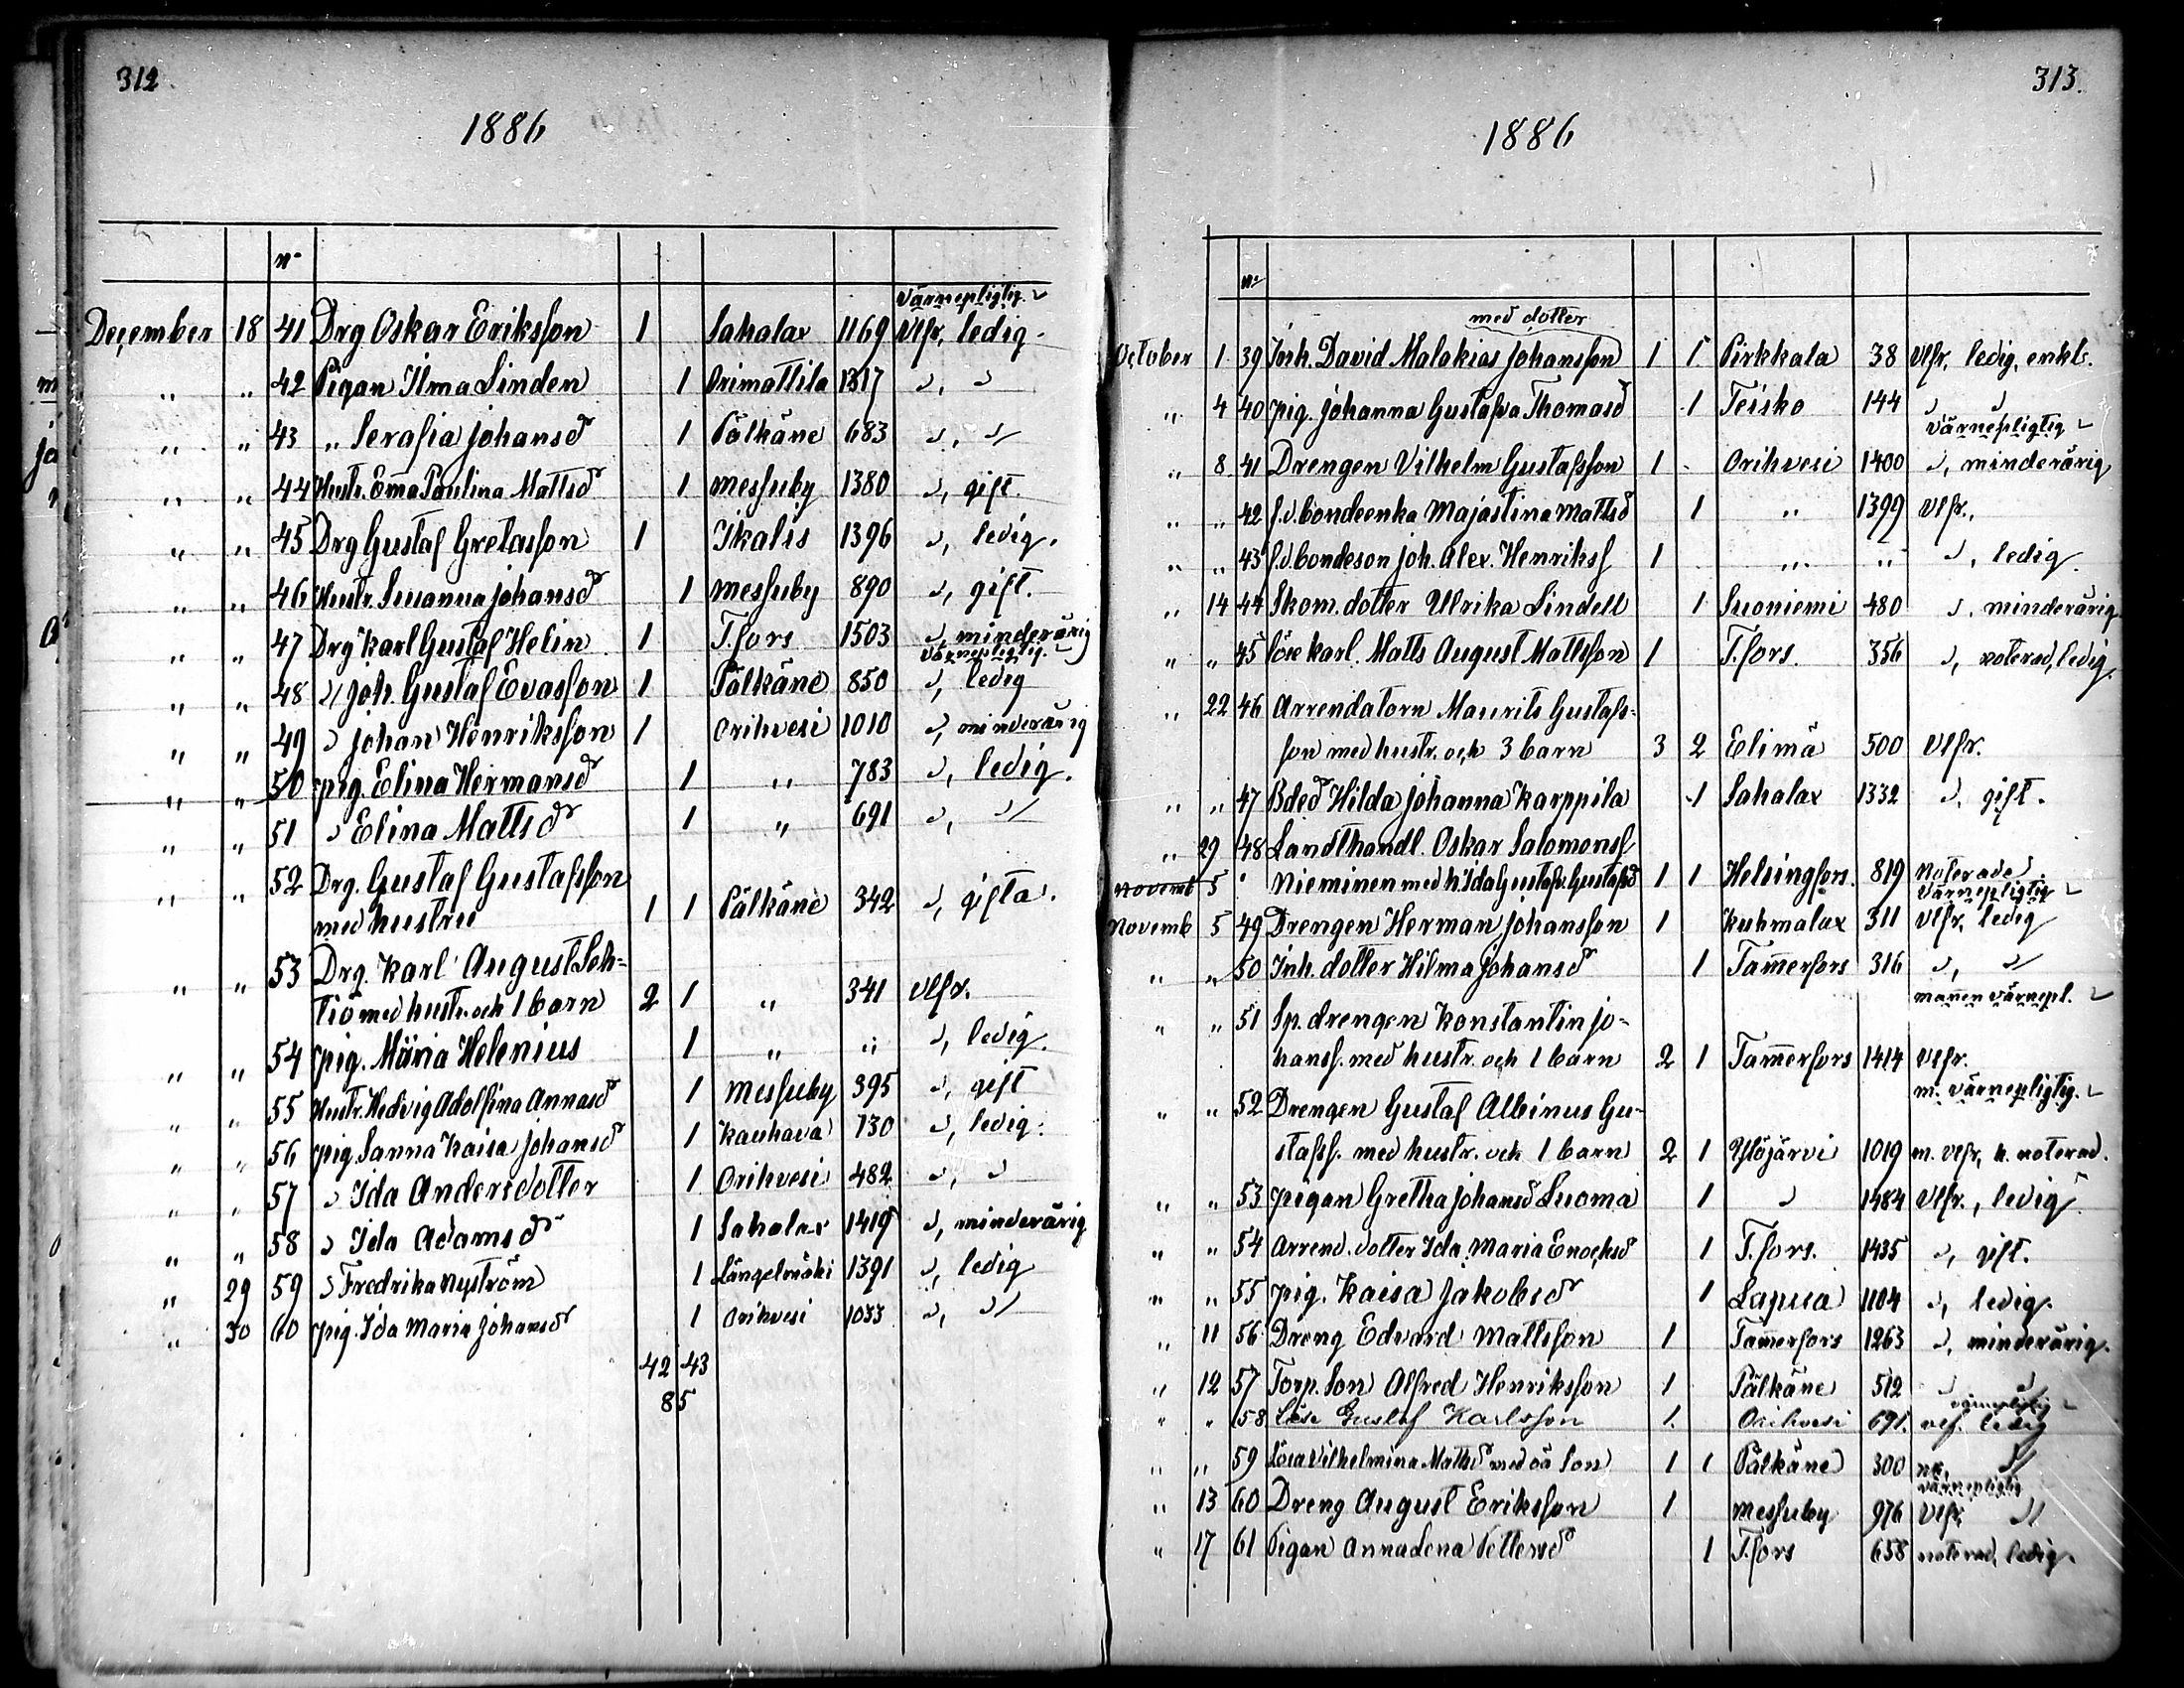 312
1886
No
värnepligtig
December 18 41 Drg Oskar Eriksson 1 Sahalax 1169 Vlfr, ledig
" " 42 Pigan Ilma Linden 1 Orimattila 1317 ", "
" " 43 " Serafia Johansd 1 Pälkäne 683 ", "
" " 44 Hustr. Ema Paulina Mattsd 1 Messuby 1380 ", gift.
" " 45 Drg Gustaf Gretasson 1 Ikalis 1396 ", ledig.
" " 46 Hustr. Susanna Johansd 1 Messuby 890 ", gift.
" " 47 Drg Karl Gustaf Helin 1 T.fors 1503 ", minderårig
värnepligtig.
" " 48 " Joh. Gustaf Evasson 1 Pälkäne 850 ", ledig
" " 49 " Johan Henriksson 1 Orihvesi 1010 ", minderårig
" " 50 pig. Elina Hermansd 1 " 783 ", ledig.
" " 51 " Elina Mattsd 1 " 691 ", "
" " 52 Drg. Gustaf Gustafsson
med hustru 1 1 Pälkäne 342 ", gifta.
" " 53 Drg. Karl August Leh-
tiö med hustr. och 1 barn 2 1 " 341 Vlfr.
" " 54 pig. Maria Helenius 1 " " ", ledig.
" " 55 Hustr. Hedvig Adolfina Annasd 1 Messuby 395 ", gift
" " 56 pig. Sanna Kaisa Johansd 1 Kauhava 130 ", ledig.
" " 57 " Ida Andersdotter 1 Orihvesi 482 ", "
" " 58 " Ida Adamsd 1 Sahalax 1419 ", minderårig
" 29 59 " Fredrika Nyström 1 Längelmäki 1391 ", ledig
" 30 60 pig. Ida Maria Johansd 1 Orihvesi 1033 ", "
42 43
85
313.
1886
No
med dotter
October 1 39 Inh. David Malakias Johansson 1 1 Pirkkala 38 Vlfr, ledig, enkl.
" 4 40 pig. Johanna Gustafva Thomasd 1 Teisko 144 " "
värnepligtig
" 8 41 Drengen Vilhelm Gustafsson 1 Orihvesi 1400 ", minderårig
" " 42 f.d. bondeenka Majastina Mattsd 1 " 1399 Vlfr.,
" " 43 f.d. bondeson Joh. Alex. Henrikss 1 " " ", ledig.
" 14 44 Skom. dotter Ulrika Lindell 1 Suoniemi 480 ", minderårig
" " 45 löse karl. Matts August Mattsson 1 T.fors. 356 ", noterad, ledig.
" 22 46 Arrendatorn Maurits Gustafs-
son med hustr. och 3 barn 3 2 Elimä 500 Vlfr.
" " 47 Bded Hilda Johanna Karppila 1 Sahalax 1332 ", gift.
" 29 48 Landthandl. Oskar Salomonss
Novemb 5 " Nieminen med h. Ida Gustafv. Gustafsd 1 1 Helsingfors. 819 Noterade
värnepligtig
Novemb 5 49 Drengen Herman Johansson 1 Kuhmalax 311 Vlfr, ledig
" " 50 Inh. dotter Hilma Johansd 1 Tamerfors 316 ", "
manen värnepl.
" " 51 Sp. drengen Konstantin Jo-
hanss. med hustr. och 1 barn 2 1 Tamerfors 1414 Vlfr.
m. värnepligtig.
" " 52 Drengen Gustaf Albinus Gu-
stafss. med hustr. och 1 barn 2 1 Ylöjärvi 1019 m. vlfr, h. noterad.
" " 53 pigan Gretha Johansd Luoma 1 " 1484 Vlfr., ledig
" " 54 Arrend. dotter Ida Maria Enochsd 1 T.fors. 1435 ", gift.
" " 55 pig. Kaisa Jakobsd 1 Lapua 1104 ", ledig.
" 11 56 Dreng Edvard Mattsson 1 Tamerfors 1263 ", minderårig.
" 12 57 Torp. Son Alfred Henriksson 1 Pälkäne 512 " "
värnepligtig
" " 58 Löse Gustaf Karlsson 1. Orihvesi 691. vlf. ledig
" " 59 Lösa Vilhelmina Mattsd med oä Son 1 1 Pälkäne 300 "
värnepligtig
" 13 60 Dreng August Eriksson 1 Messuby 976 Vlfr "
" 17 61 Pigan Annalena Pettersd 1 T.fors 658 noterad, ledig.